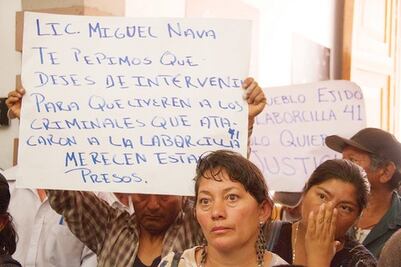 LIC. MIGUEL NAVA
TE PEPIMOS QUE
DEJES DE INTERVENI
PARA QUE LIVEREN A LOS
CRIMINALES QUE ATA-
CARON A LA LABORCILLA
MERECEN ESTA
PRESOS.
PUEBLO EJIDO
LABORCILLA 41
LO QUIER
JUSTICI